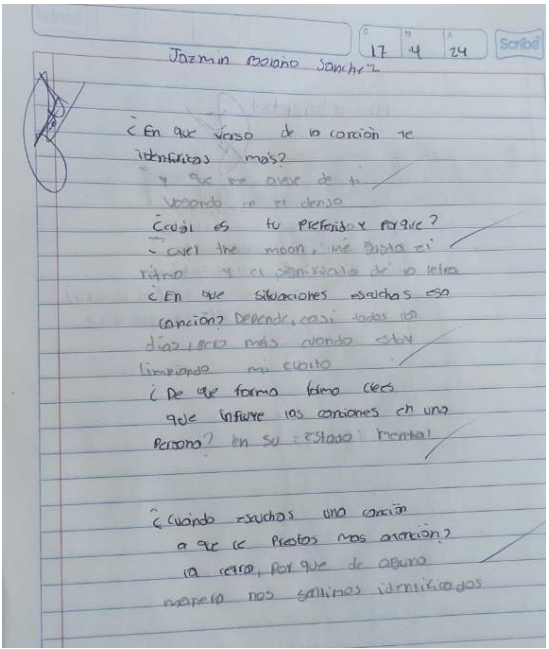 D M A
17 4 24
Scribe
Jazmin Bolaño Sanchez
¿En que verso de la canción te
identificas mas?
y que me aveze de ti
en el denso
¿cuál es tu preferido y porque?
over the moon, me gusta el
ritmo y el significado de la letra
¿En que situaciones escuchas esa
canción? Depende, casi todos los
dias, pero más cuando estoy
limpiando mi cuarto
¿De que forma crees
que influye las canciones en una
Persona? en su estado mental
¿Cuándo escuchas una canción
a que le Prestas mas atención?
la letra, por que de alguna
manera nos sentimos identificados